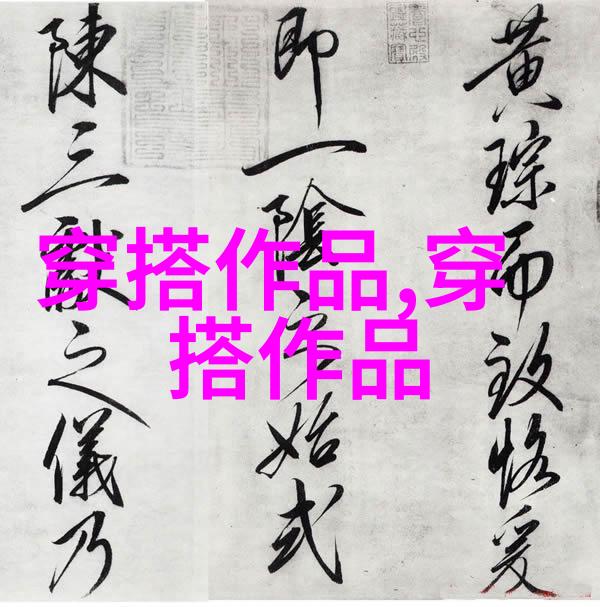 黃琮而致恪爰
即一陰始式
陳三獻之儀乃
穿搭作品,穿
搭作品